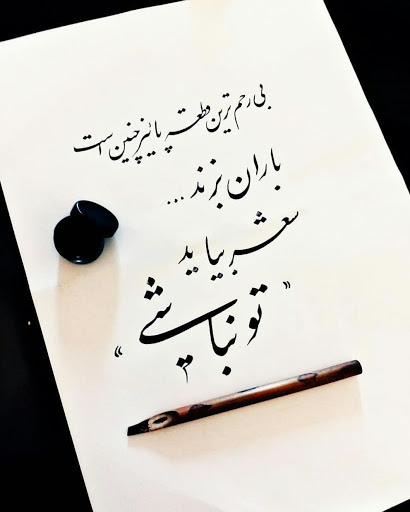 بی رحم ترین قطعه پائیز چنین است
باران بزند ...
شعر بیاید
"تو نباشی"